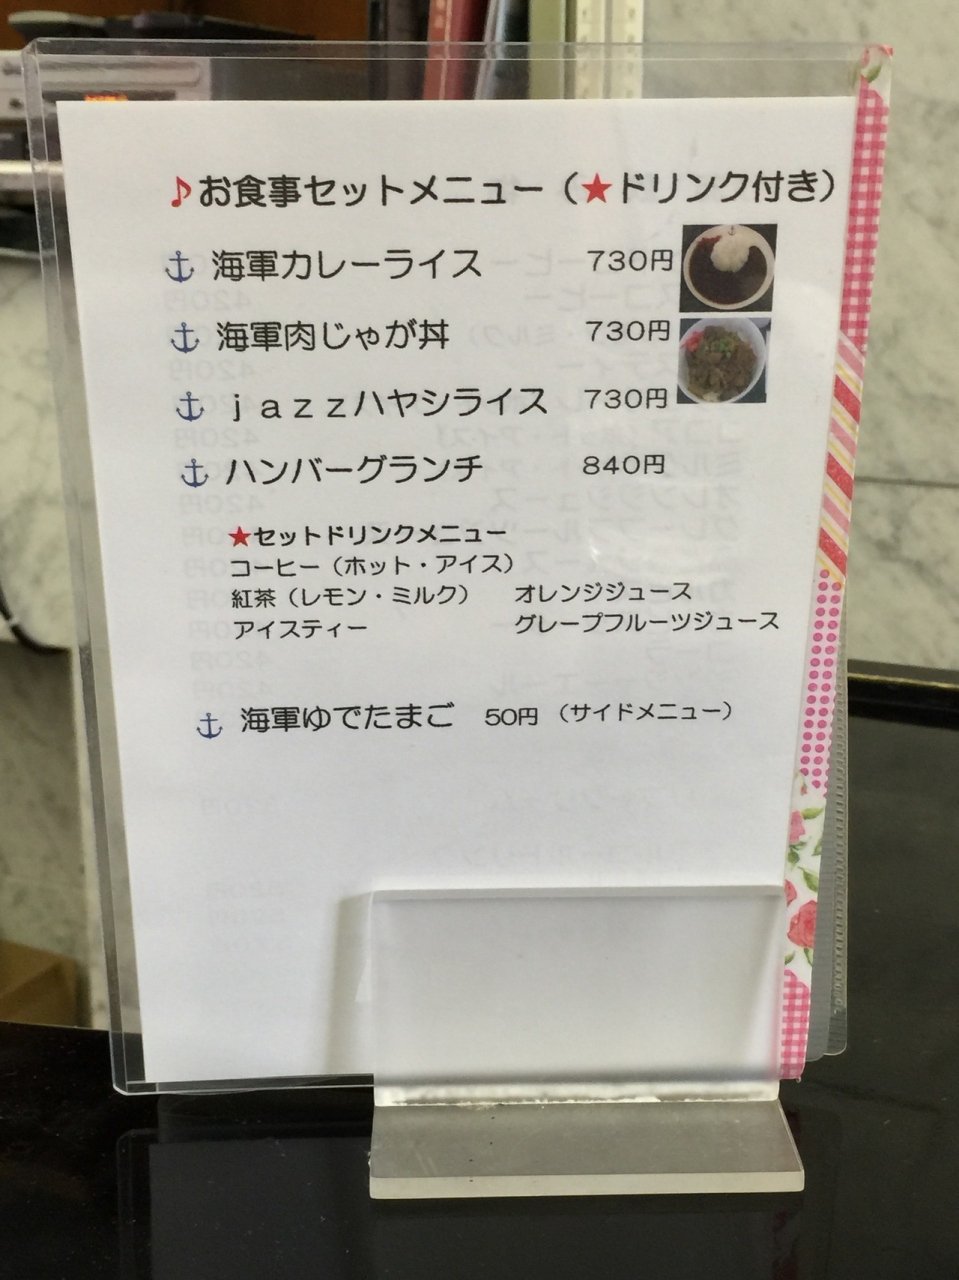 ♪お食事セットメニュー（★ドリンク付き）
海軍カレーライス 730円
海軍肉じゃが丼 730円
ｊａｚｚハヤシライス 730円
ハンバーグランチ 840円
★セットドリンクメニュー
コーヒー（ホット・アイス）
紅茶（レモン・ミルク） オレンジジュース
アイスティー グレープフルーツジュース
海軍ゆでたまご 50円 （サイドメニュー）